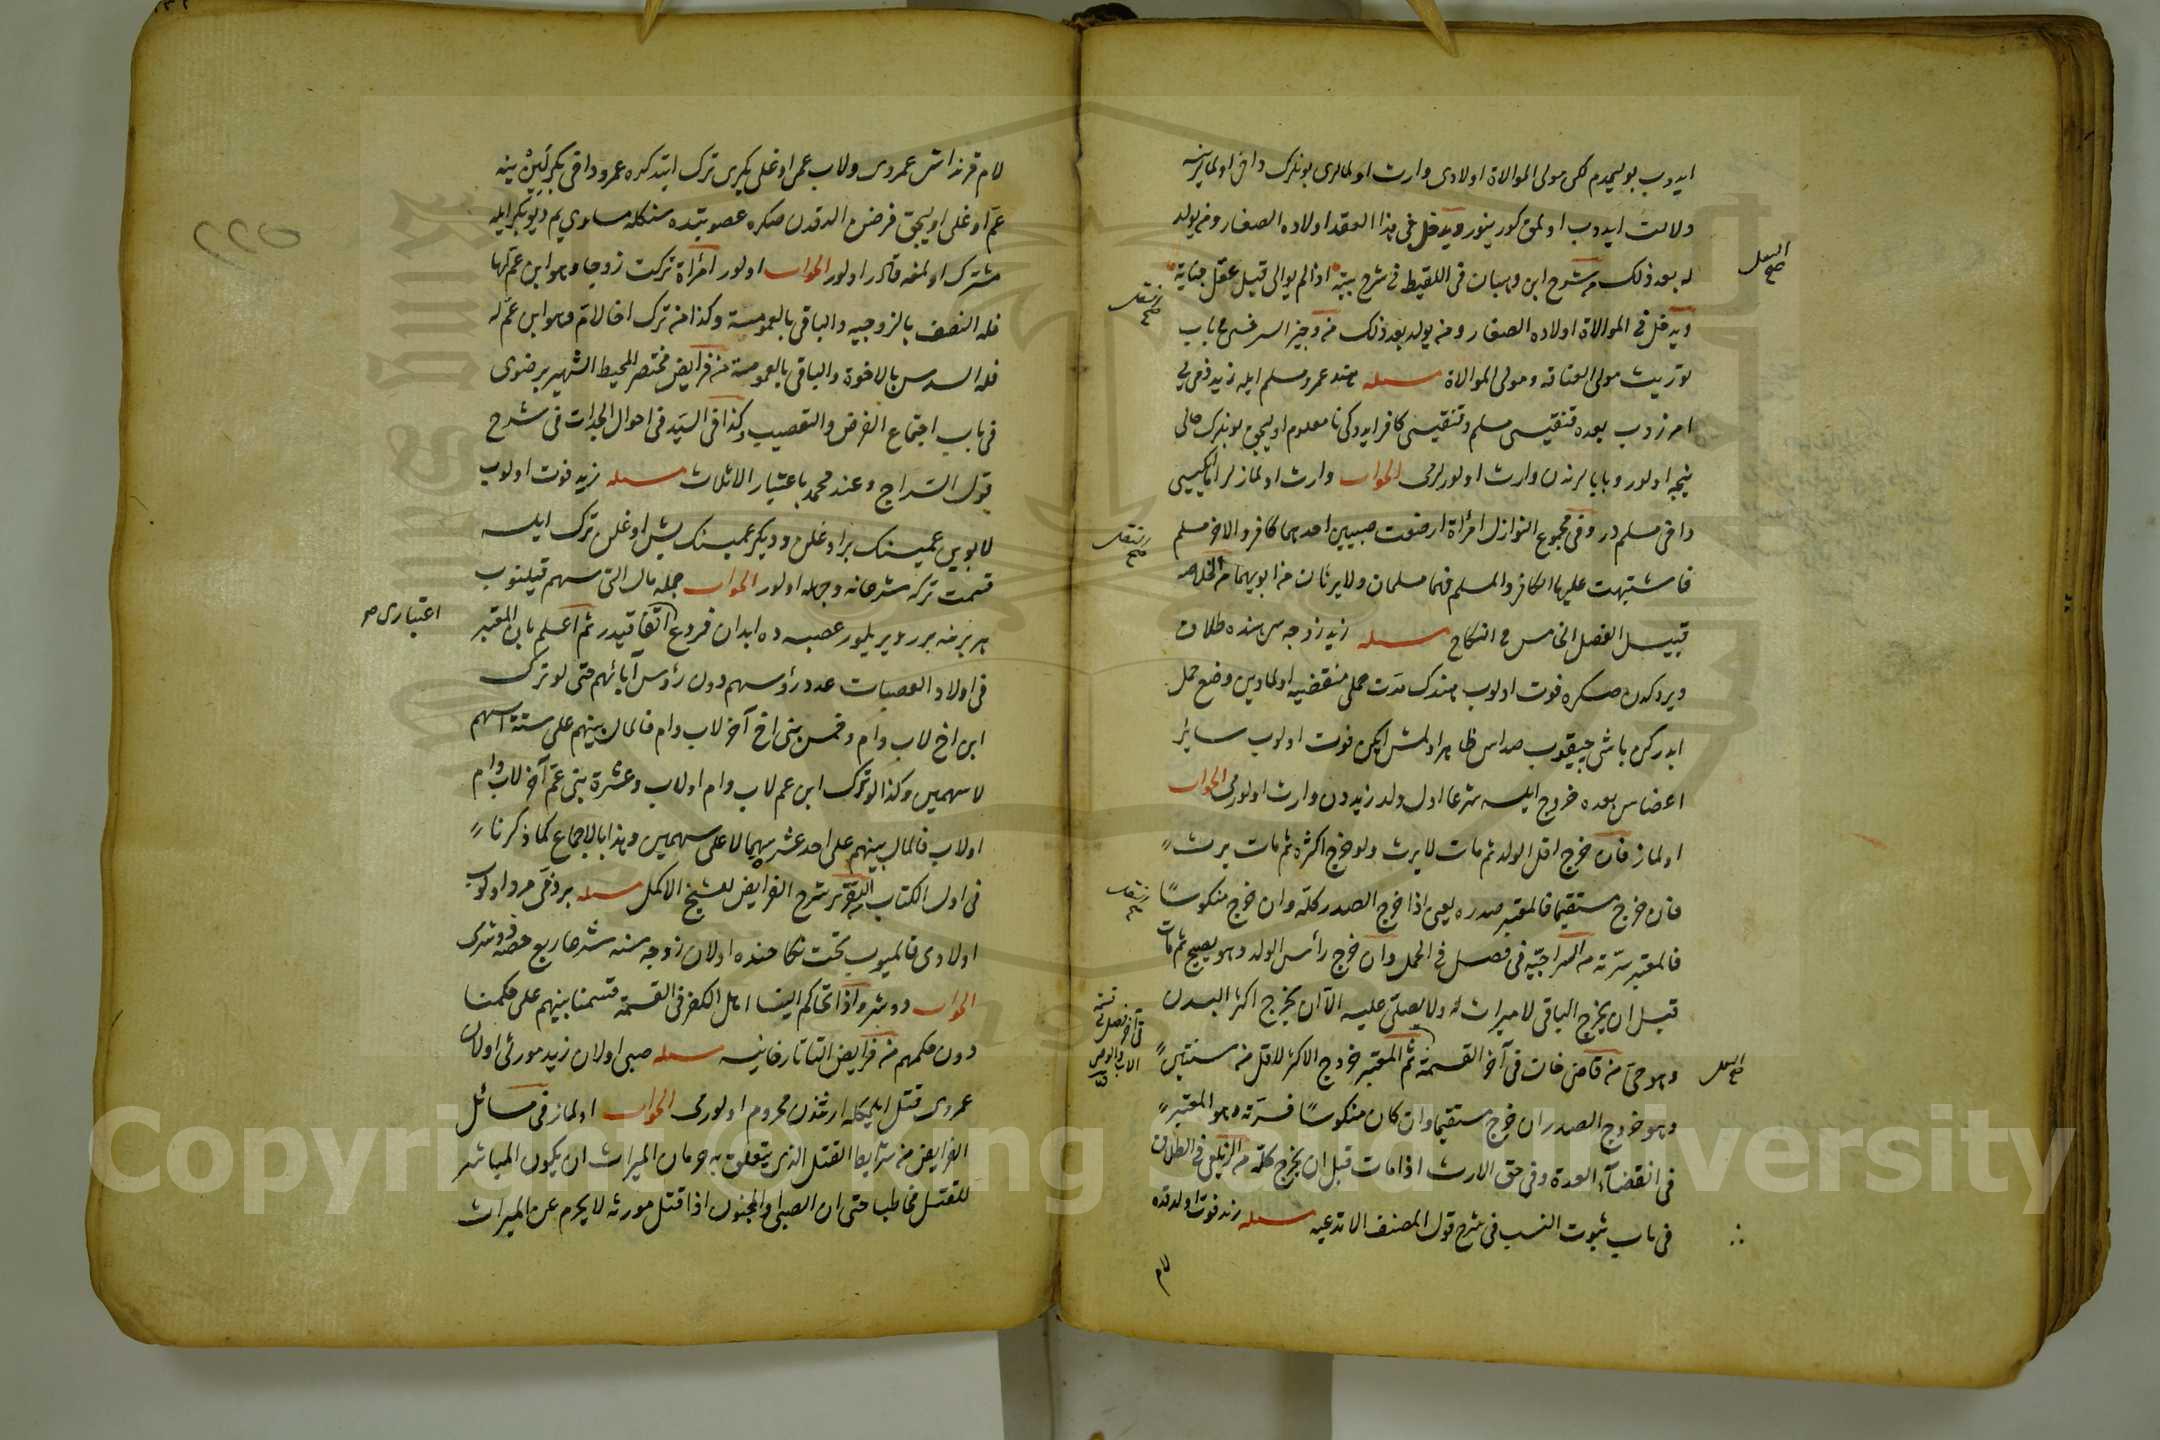 ايدوب بو ليمدم كلى مولى الموالاة اولادى وارث اولمالرى بونلرك داخل اولمالرينه
ولالت ايدوب اولمق كورينور ويدخل فى هذا العقد اولاده الصغار ومن يولد
له بعد ذلك من شرح ابن وهبان فى اللقيط فى شرح بيته اذا لم يوالى قبيل عقل جناية
ويدخل فى الموالاة اولاده الصغار ومن يولد بعد ذلك من وجيز السرخسى فى باب
توريث مولى العتاقه ومولى الموالاة مسئله هند عمرو مسلم ايله زيد ذمى يى
امزروب بعده قنغيسى مسلم وقنغيسى كافر ايدوكى نا معلوم اوليجق بونلرك حالى
نيجه اولور وبابالرندن وارث اولورلرمى الجواب وارث اولمازلر ايكيسى
داخى مسلم در وفى مجموع النوازل امرأة ارضعت صبيين احدهما كافر والاخر مسلم
فاشتبهت عليها الكافر والمسلم فهما مسلمان ولا يرثان من ابويهما من الخلاصه
قبيل الفصل الخامس فى النكاح مسئله زيد زوجه سى هنده طلاق
ويردكدن صكره فوت اولوب هندك مدت حملى منقضيه اولمادين وضع حمل
ايدركن باشى چيقوب صداسى ظاهر اولمش ايكن فوت اولوب سائر
اعضاسى بعده خروج ايلسه شرعا اول ولد زيددن وارث اولورمى الجواب
اولماز فان خرج اقل الولد ثم مات لا يرث ولو خرج اكثره ثم مات يرث
فان خرج مستقيما فالمعتبر صدره يعنى اذا خرج الصدر كله وان خرج منكوسا
فالمعتبر سرته من السراجيه فى فصل فى الحمل وان خرج رأس الولد وهو يصيح ثم مات
قبل ان يخرج الباقى لا ميراث له ولا يصلى عليه الا ان يخرج اكثر البدن
وهو حى من قاضى خان فى آخر القسمة ثم المعتبر خروج الاكثر لاقل من سنتين
وهو خروج الصدر ان خرج مستقيما وان كان منكوسا فسرته وهو المعتبر
فى انقضاء العدة وفى حق الارث اذا مات قبل ان يخرج كله من الزيلعى فى الطلاق
فى باب ثبوت النسب فى شرح قول المصنف الا تدعيه مسئله زيد فوت اولدقده
لام
لام قرنداش عمروى ولاب عم اوغلى بكرى ترك ايتدكده عمرو داخى بكر كبى
عم اوغلى اوليجق فرض الدقدن صكره عصوبتده سنكله مساوى يم ديو بكر ايله
مشترك اولمغه قادر اولور الجواب اولور امرأة تركت زوجا وهو ابن عمها
فله النصف بالزوجيه والباقى بالعمومة وكذا من ترك اخا لام وهو ابن عم له
فله السدس بالاخوة والباقى بالعمومة من فرايض مختصر المحيط الشهير برضوى
فى باب اجتماع الفرض والتعصيب وكذا فى السيد فى احوال الجدات فى شرح
قول السراج وعند محمد باعتبار الاثلاث مسئله زيد فوت اولوب
لابوين عميسنك بر اوغلن وديكر عميسنك بش اوغلن ترك ايلسه
قسمت تركه شرعا نه وجهله اولور الجواب جمله مال التى سهم قيلنوب
هر برينه برر ويريلور عصبه ده ابدان فروع اتفاقيدر ثم اعلم بان المعتبر
فى اولاد العصبات عدد رؤسهم دون رؤس آبائهم حتى لو ترك
ابن اخ لاب وام وخمس بنى اخ آخر لاب وام فالمال بينهم على ستة اسهم
لا سهمين وكذا لو ترك ابن عم لاب وام او لاب وعشرة بنى عم آخر لاب وام
او لاب فالمال بينهم على احد عشر سهما لا على سهمين وهذا بالاجماع كما ذكرنا
فى اول الكتاب شرح الفرايض لشيخ الاكمل مسئله بر ذمى مرد اولوب
اولادى قالميوب تحت نكاحنده اولان زوجه سنه شرعا ربع حصه دوشرمى
الجواب دوشر واذا تحاكم الينا اهل الكفر فى القسمة قسمنا بينهم على حكمنا
دون حكمهم من فرايض التاتارخانيه مسئله صبى اولان زيد مورثى اولان
عمروى قتل ايليمكله ارثندن محروم اولورمى الجواب اولماز فى مسائل
الفرايض من شرايط القتل الذى يتعلق به حرمان الميراث ان يكون المباشر
للقتل مخاطبا حتى ان الصبى والمجنون اذا قتل مورثه لا يحرم عن الميراث
اعتبارى
Copyright © King Saud University